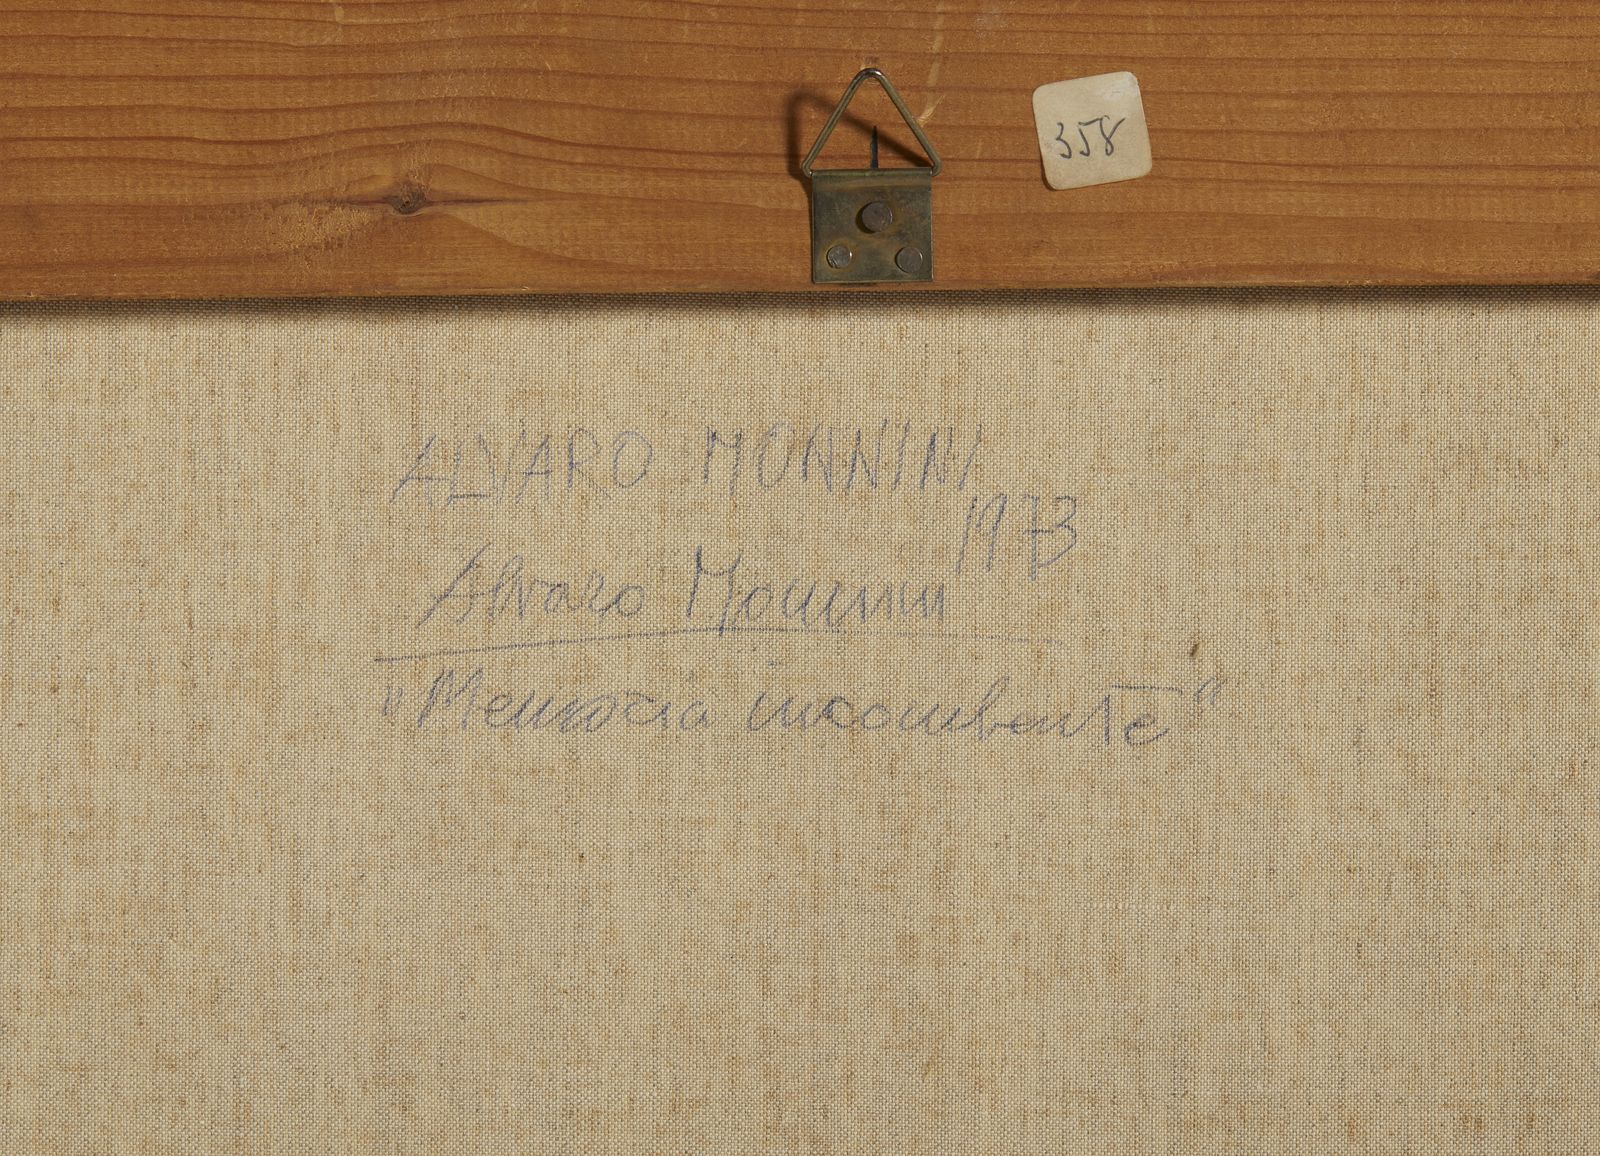 358
ALVARO MONNINI
1973
Alvaro Monnini
"Memoria incombente"